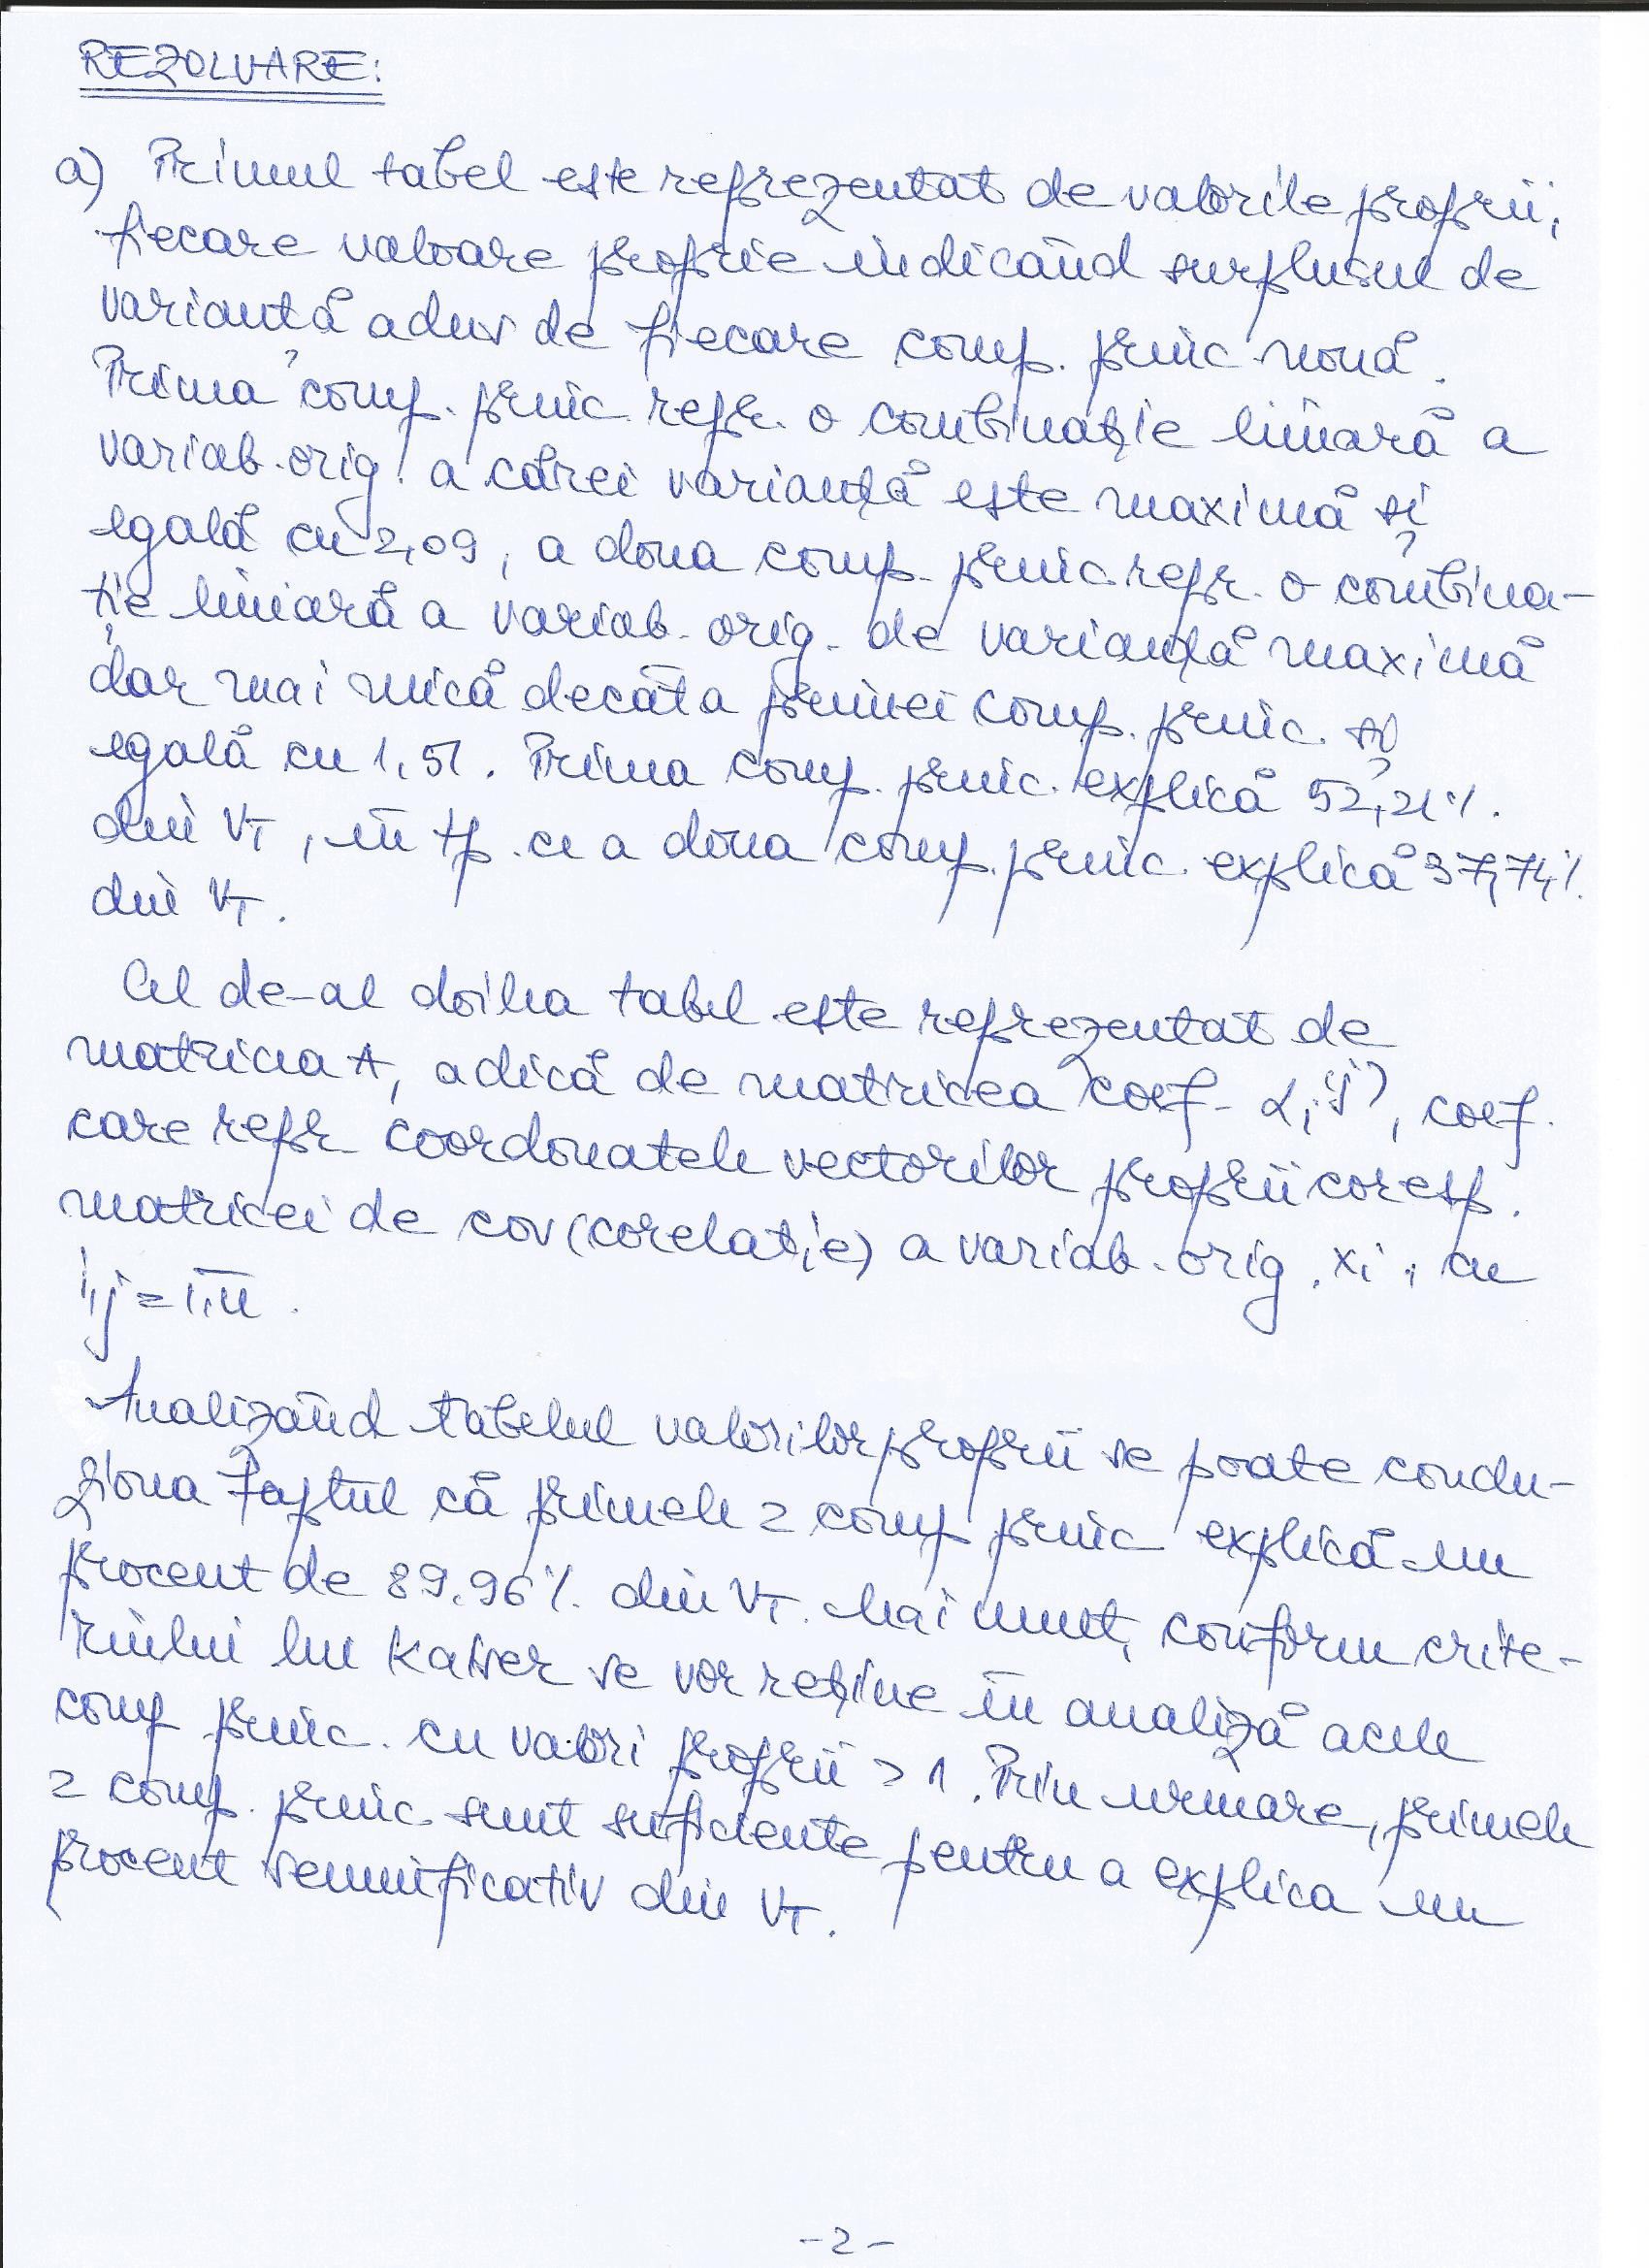 REZOLVARE:
a) Primul tabel este reprezentat de valorile proprii,
fiecare valoare proprie indicând surplusul de
varianță adus de fiecare comp. princ nouă.
Prima comp. princ repr. o combinație liniară a
variab. orig. a cărei varianță este maximă și
egală cu 2,09, a doua comp. princ repr. o combina-
ție liniară a variab. orig. de varianță maximă
dar mai mică decât a primei comp. princ. și
egală cu 1,51. Prima comp. princ. explică 52,21%.
din VT, în tp. ce a doua comp. princ. explică 37,74%.
din VT.
Cel de-al doilea tabel este reprezentat de
matricea A, adică de matricea coef. αi(j), coef.
care repr coordonatele vectorilor proprii coresp.
matricei de cov (corelație) a variab. orig. xi, cu
i,j = 1,n.
Analizând tabelul valorilor proprii se poate conclu-
ziona faptul că primele 2 comp princ explică un
procent de 89.96%. din VT. Mai mult, conform crite-
riului lui Kaiser se vor reține în analiză acele
comp princ. cu valori proprii > 1. Prin urmare, primele
2 comp. princ. sunt suficiente pentru a explica un
procent semnificativ din VT.
-2-